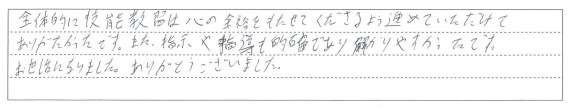 全体的に技能教習は心の余裕をもたせてくださるよう進めていただけて
ありがたかったです。また、指示や指導も的確であり解りやすかったです。
お世話になりました。ありがとうございました。